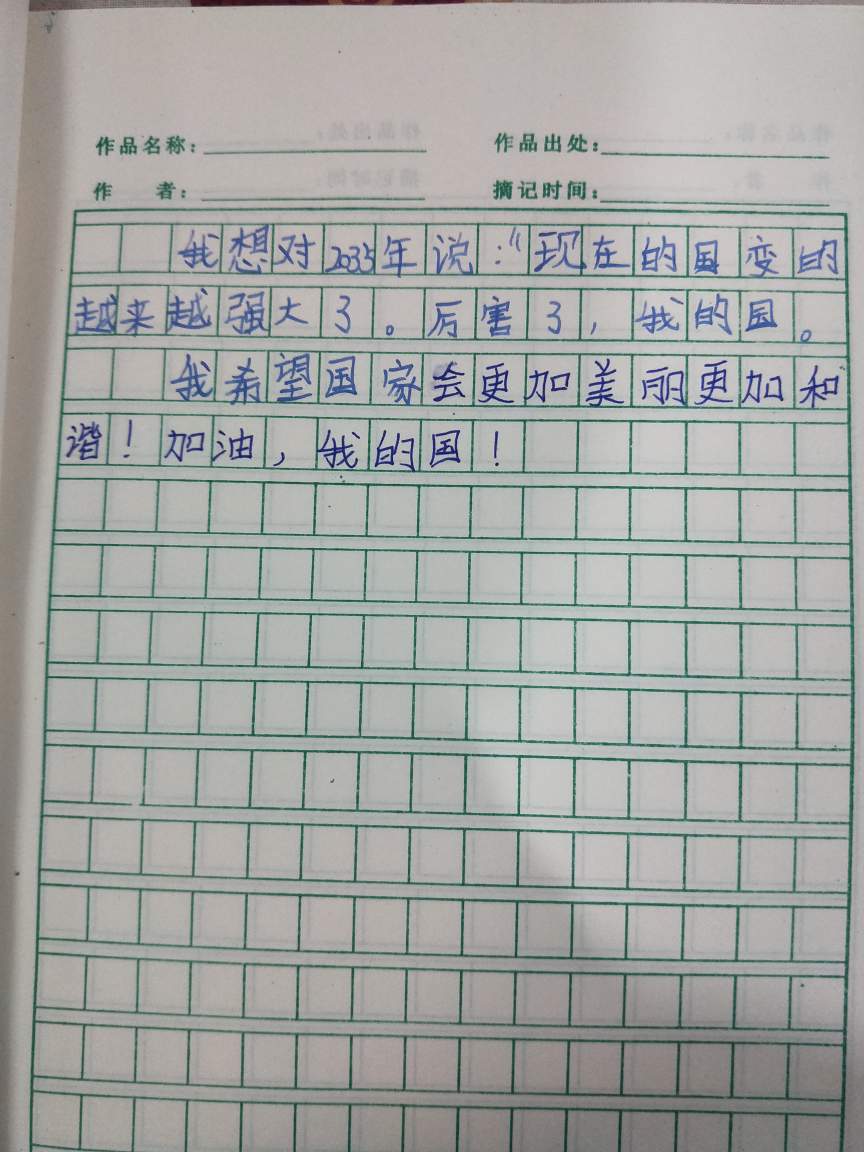 作品名称： 作品出处：
作 者： 摘记时间：
我想对2035年说：“现在的国变的
越来越强大了。厉害了，我的国。
我希望国家会更加美丽更加和
谐！加油，我的国！